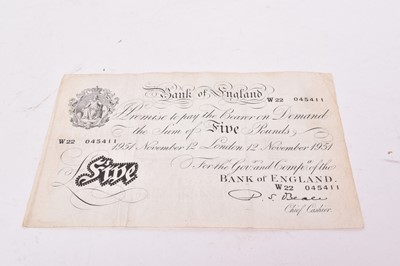 Bank of England
W22 045411
I Promise to pay the Bearer on Demand
the Sum of Five Pounds
W22 045411
1951 November 12 London 12 November 1951
For the Govr. and Compa. of the
BANK OF ENGLAND
W22 045411
£Five
P. S. Beale
Chief Cashier